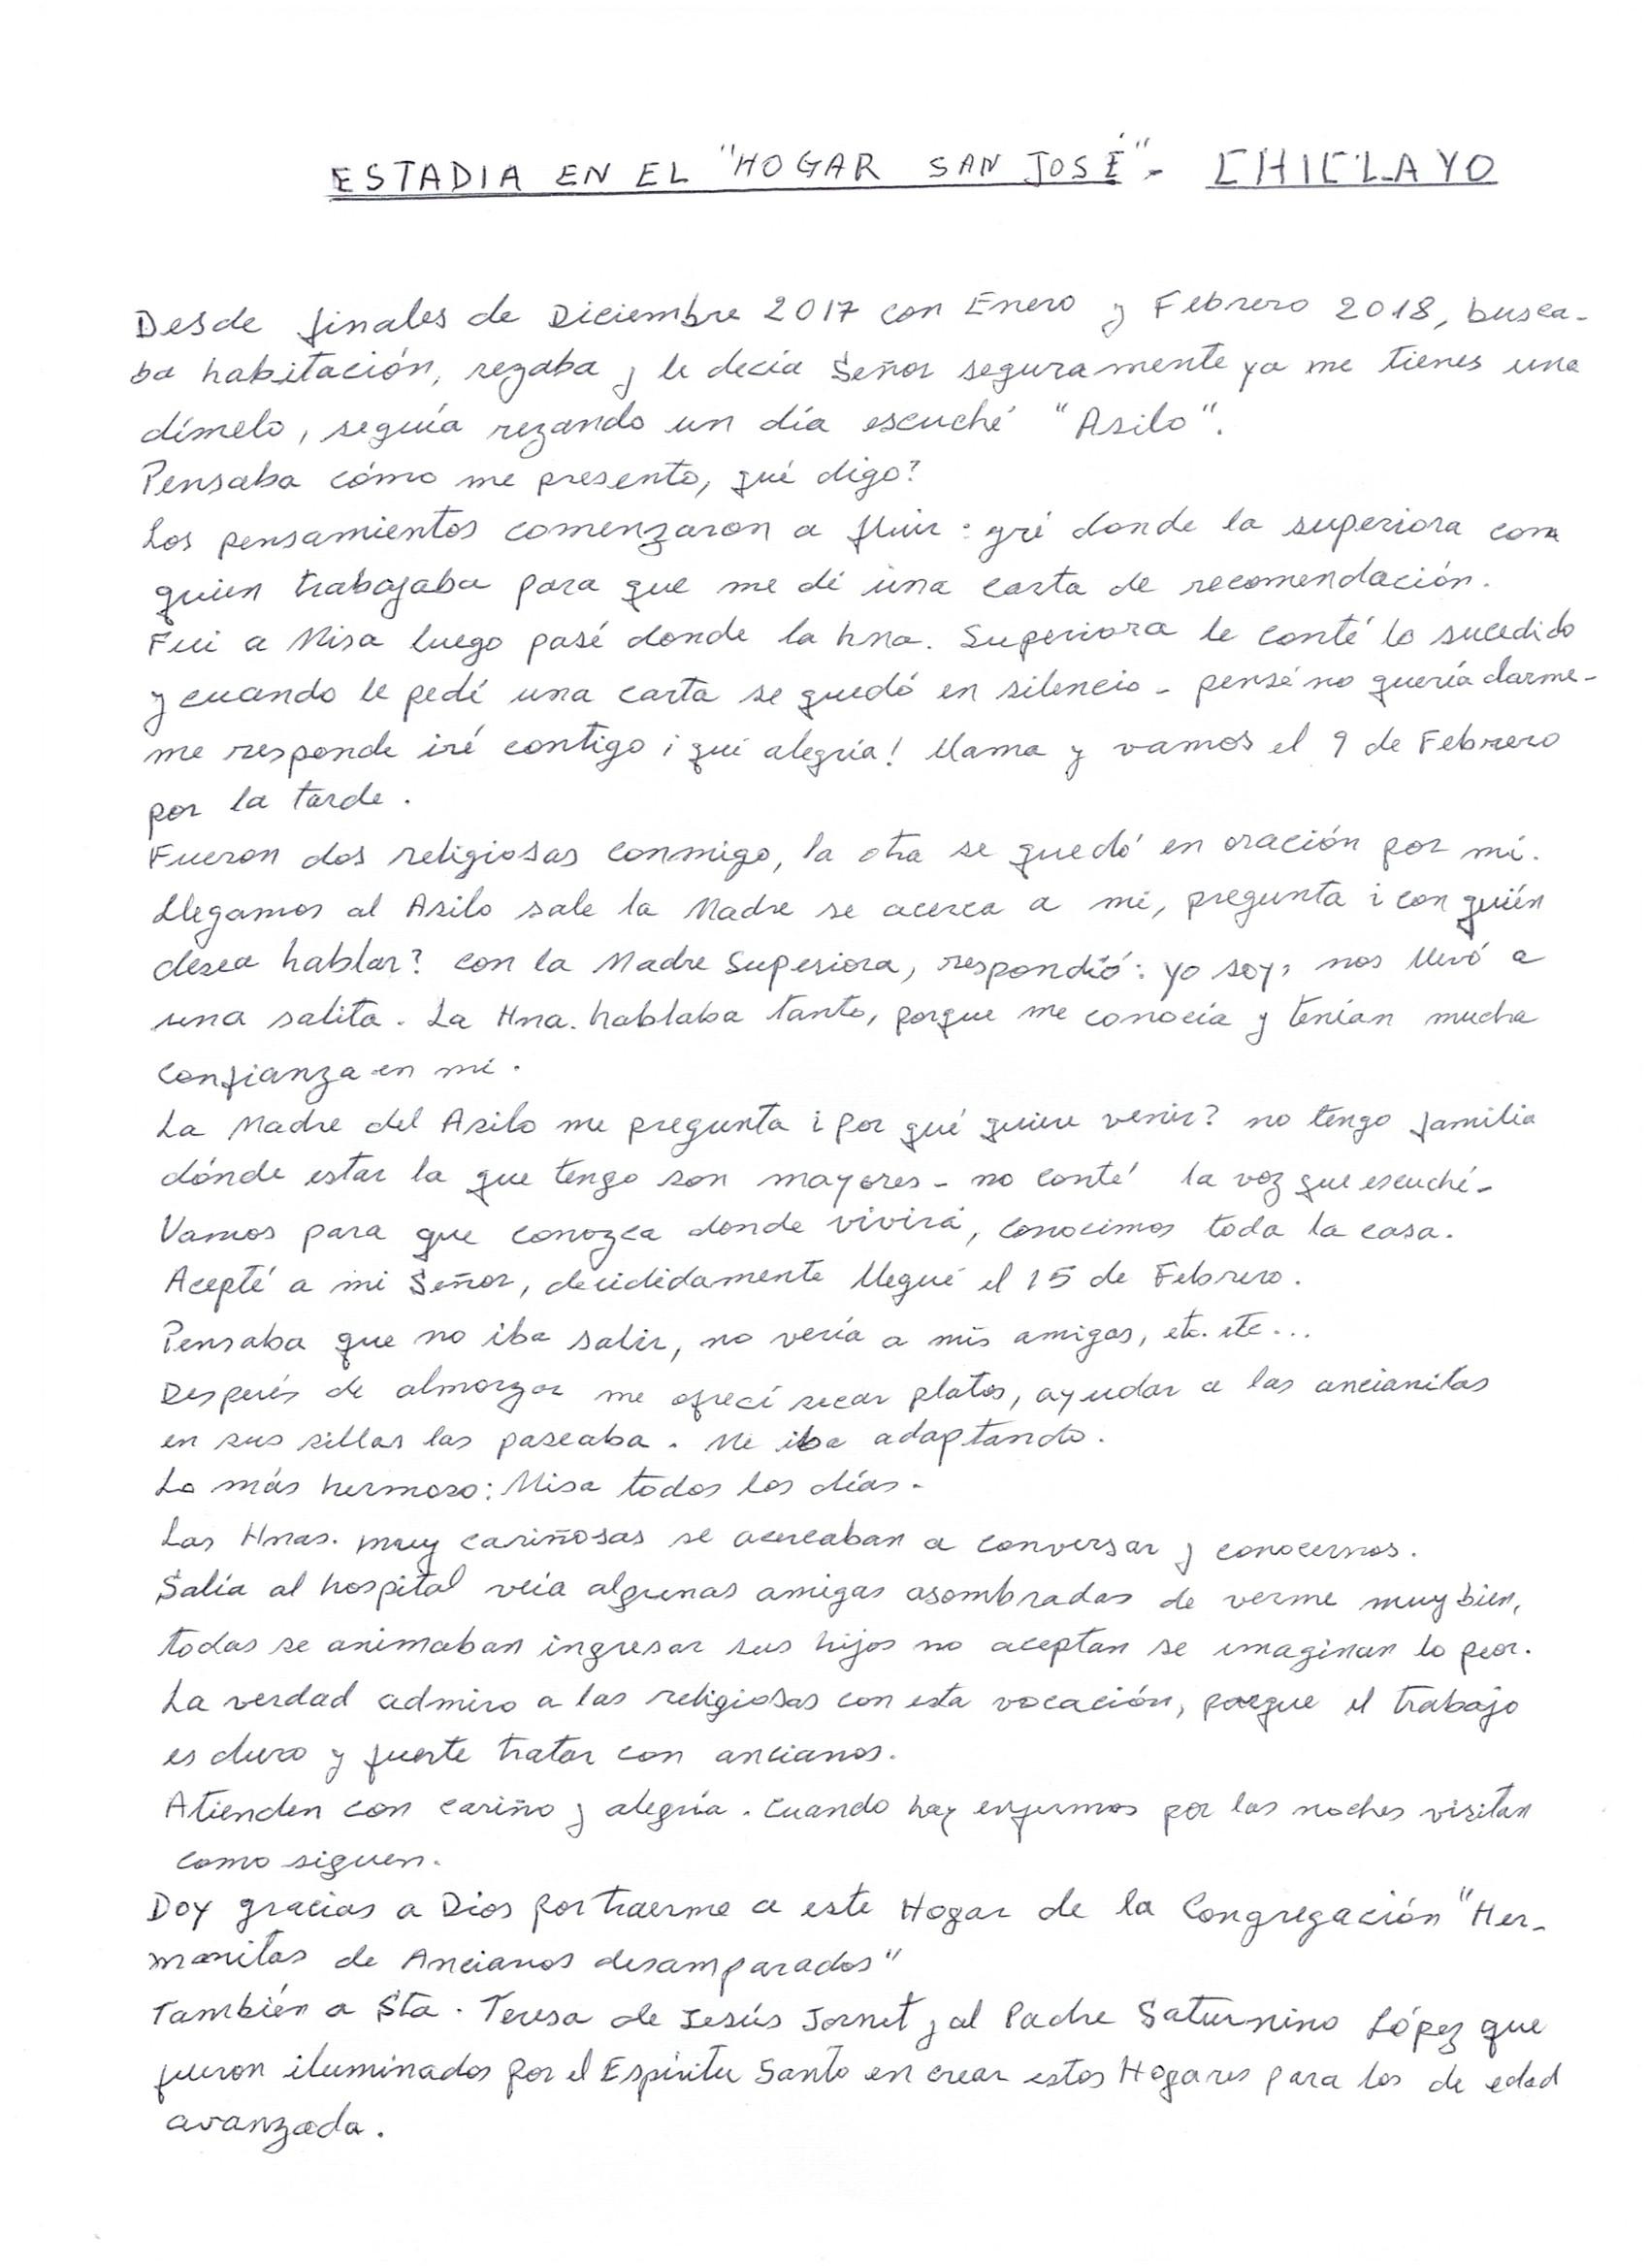 ESTADIA EN EL "HOGAR SAN JOSÉ" - CHICLAYO
Desde finales de Diciembre 2017 con Enero y Febrero 2018, busca-
ba habitación, rezaba y le decía Señor seguramente ya me tienes una
dímelo, seguía rezando un día escuché "Asilo".
Pensaba cómo me presento, qué digo?
Los pensamientos comenzaron a fluir: iré donde la superiora con
quien trabajaba para que me dé una carta de recomendación.
Fui a Misa luego pasé donde la hna. Superiora le conté lo sucedido
y cuando le pedí una carta se quedó en silencio - pensé no quería darme-
me responde iré contigo ¡qué alegría! llama y vamos el 9 de Febrero
por la tarde.
Fueron dos religiosas conmigo, la otra se quedó en oración por mí.
Llegamos al Asilo sale la Madre se acerca a mí, pregunta ¿con quién
desea hablar? con la Madre Superiora, respondió: yo soy, nos llevó a
una salita. La Hna. hablaba tanto, porque me conocía y tenían mucha
confianza en mí.
La Madre del Asilo me pregunta ¿por qué quiere venir? no tengo familia
dónde estar la que tengo son mayores - no conté la voz que escuché-
Vamos para que conozca donde vivirá, conocimos toda la casa.
Acepté a mi Señor, decididamente llegué el 15 de Febrero.
Pensaba que no iba salir, no vería a mis amigas, etc. etc...
Después de almorzar me ofrecí secar platos, ayudar a las ancianitas
en sus sillas las paseaba. Me iba adaptando.
Lo más hermoso: Misa todos los días.
Las Hnas. muy cariñosas se acercaban a conversar y conocernos.
Salía al hospital veía algunas amigas asombradas de verme muy bien,
todas se animaban ingresar sus hijos no aceptan se imaginan lo peor.
La verdad admiro a las religiosas con esta vocación, porque el trabajo
es duro y fuerte tratar con ancianos.
Atienden con cariño y alegría. Cuando hay enfermos por las noches visitan
como siguen.
Doy gracias a Dios por traerme a este Hogar de la Congregación "Her-
manitas de Ancianos desamparados"
También a Sta. Teresa de Jesús Jornet y al Padre Saturnino López que
fueron iluminados por el Espíritu Santo en crear estos Hogares para los de edad
avanzada.